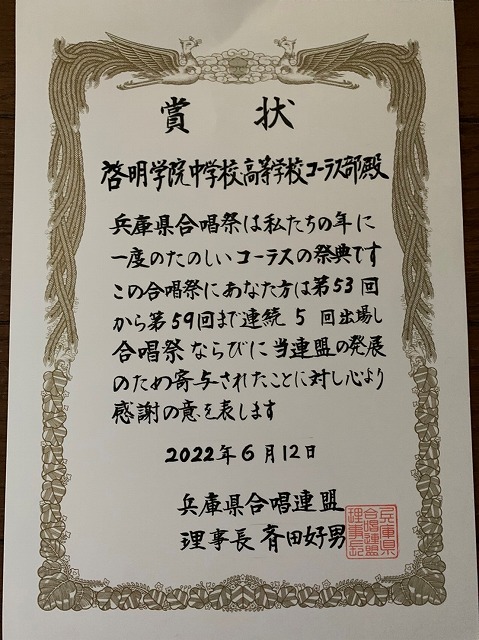 賞状
啓明学院中学校高等学校コーラス部殿
兵庫県合唱祭は私たちの年に
一度のたのしいコーラスの祭典です
この合唱祭にあなた方は第53回
から第59回まで連続5回出場し
合唱祭ならびに当連盟の発展
のため寄与されたことに対し心より
感謝の意を表します
2022年6月12日
兵庫県合唱連盟
理事長 斉田好男
兵庫県
合唱連盟
理事長